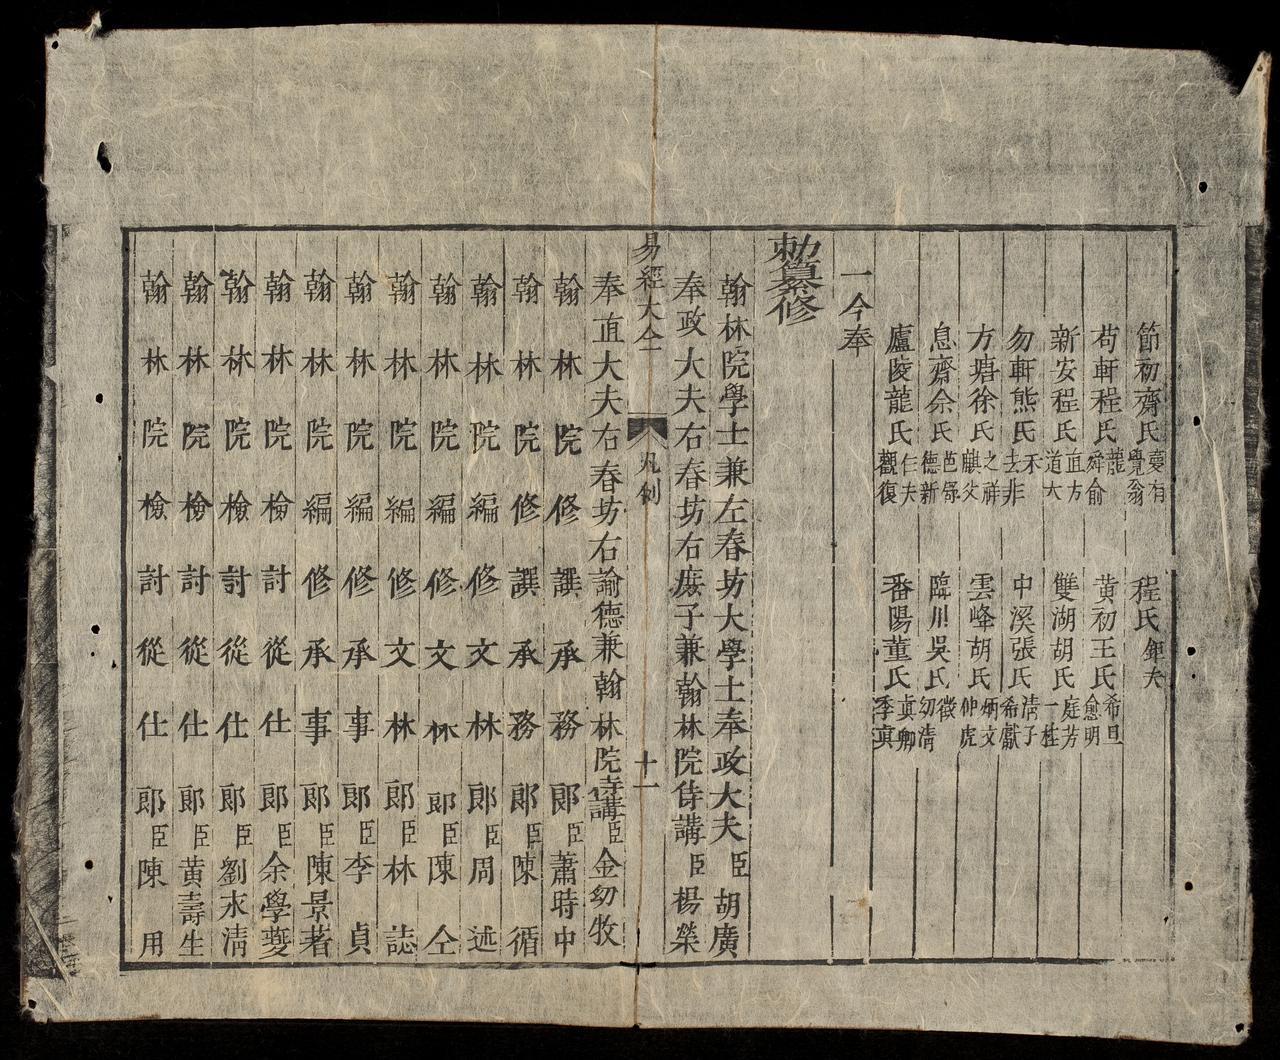 節初齋氏夢有覺翁 程氏鉅夫
荀軒程氏龍舜俞 黃初王氏希旦愈明
新安程氏直方道大 雙湖胡氏庭芳一桂
勿軒熊氏禾去非 中溪張氏清子希獻
方塘徐氏之祥麒父 雲峰胡氏炳文仲虎
息齋余氏芑舒德新 臨川吳氏徵幼清
廬陵龍氏仁夫觀復 番陽董氏真卿季真
一今奉
勑纂修
翰林院學士兼左春坊大學士奉政大夫臣胡廣
奉政大夫右春坊右庶子兼翰林院侍講臣楊榮
易經大全 凡例 十一
奉直大夫右春坊右諭德兼翰林院侍講臣金幼孜
翰林院修譔承務郎臣蕭時中
翰林院修譔承務郎臣陳循
翰林院編修文林郎臣周述
翰林院編修文林郎臣陳全
翰林院編修文林郎臣林誌
翰林院編修承事郎臣李貞
翰林院編修承事郎臣陳景著
翰林院檢討從仕郎臣余學夔
翰林院檢討從仕郎臣劉永清
翰林院檢討從仕郎臣黃壽生
翰林院檢討從仕郎臣陳用